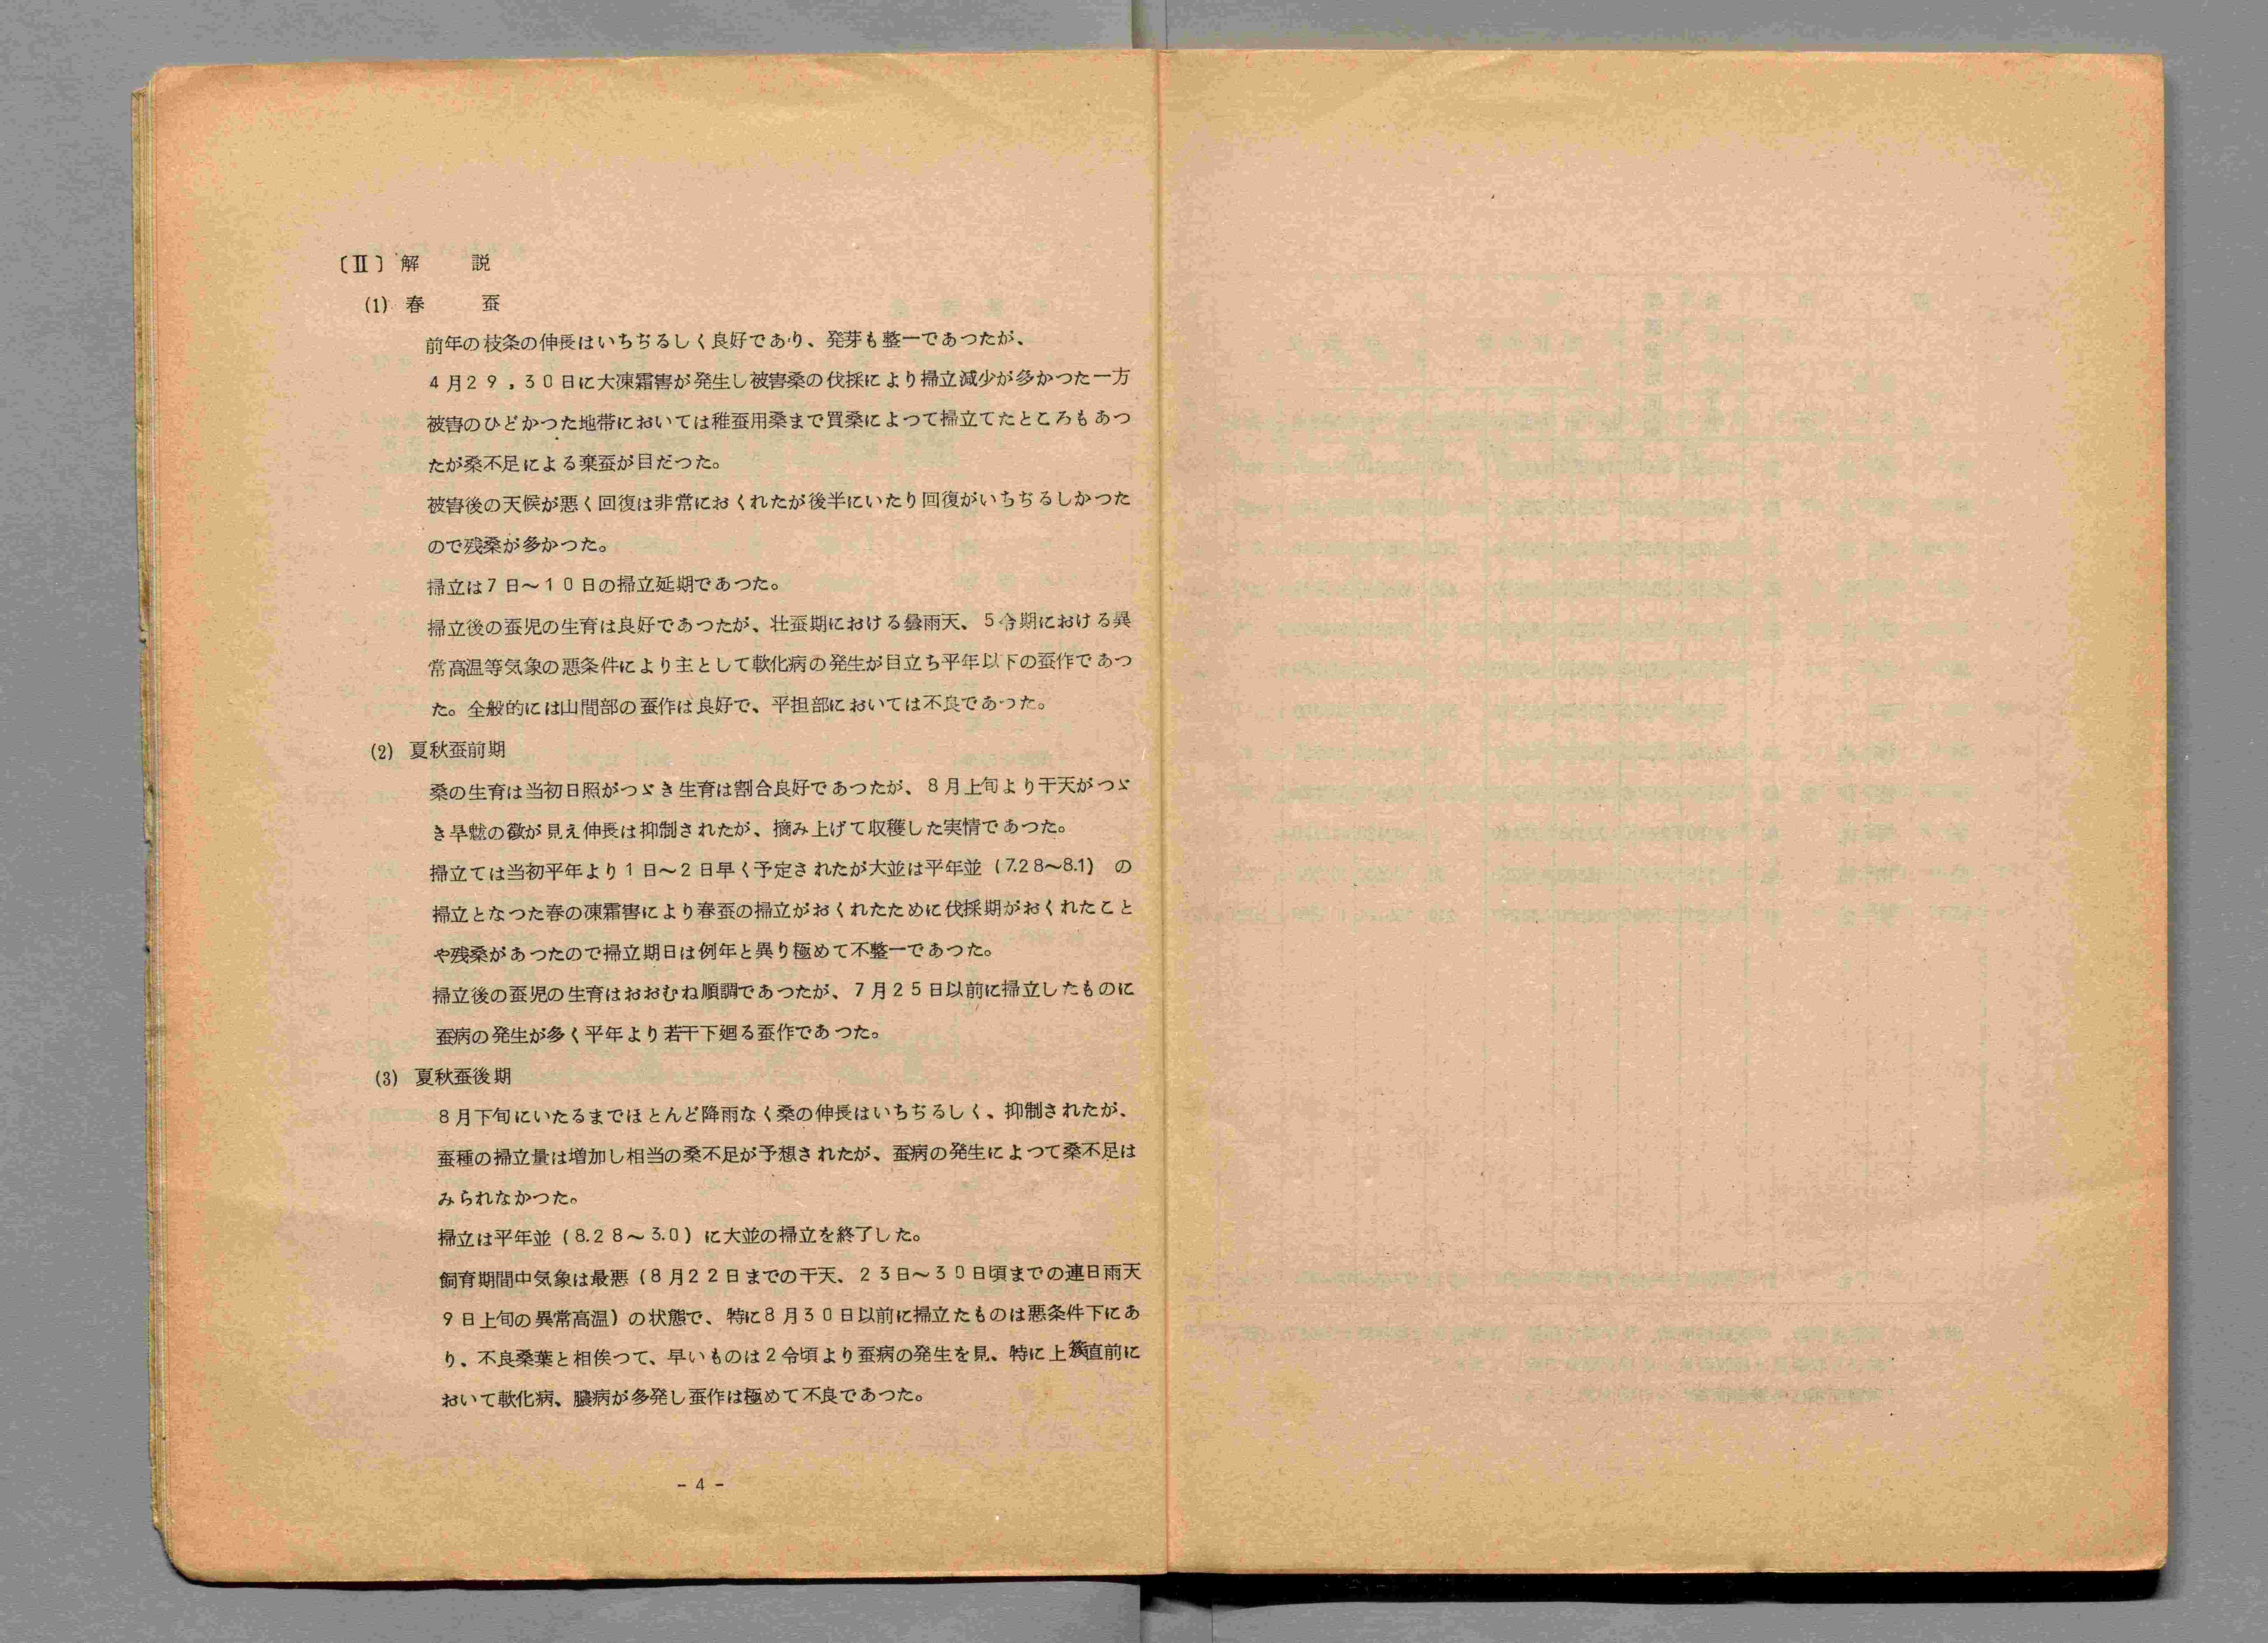 〔Ⅱ〕解　説
(1) 春　蚕
前年の枝条の伸長はいちぢるしく良好であり、発芽も整一であつたが、
4月29,30日に大凍霜害が発生し被害桑の伐採により掃立減少が多かつた一方
被害のひどかつた地帯においては稚蚕用桑まで買桑によつて掃立てたところもあつ
たが桑不足による棄蚕が目だつた。
被害後の天候が悪く回復は非常におくれたが後半にいたり回復がいちぢるしかつた
ので残桑が多かつた。
掃立は7日〜10日の掃立延期であつた。
掃立後の蚕児の生育は良好であつたが、壮蚕期における曇雨天、5令期における異
常高温等気象の悪条件により主として軟化病の発生が目立ち平年以下の蚕作であつ
た。全般的には山間部の蚕作は良好で、平担部においては不良であつた。
(2) 夏秋蚕前期
桑の生育は当初日照がつゞき生育は割合良好であつたが、8月上旬より干天がつゞ
き旱魃の徴が見え伸長は抑制されたが、摘み上げて収穫した実情であつた。
掃立ては当初平年より1日〜2日早く予定されたが大並は平年並（7.28〜8.1）の
掃立となつた春の凍霜害により春蚕の掃立がおくれたために伐採期がおくれたこと
や残桑があつたので掃立期日は例年と異り極めて不整一であつた。
掃立後の蚕児の生育はおおむね順調であつたが、7月25日以前に掃立したものに
蚕病の発生が多く平年より若干下廻る蚕作であつた。
(3) 夏秋蚕後期
8月下旬にいたるまでほとんど降雨なく桑の伸長はいちぢるしく、抑制されたが、
蚕種の掃立量は増加し相当の桑不足が予想されたが、蚕病の発生によつて桑不足は
みられなかつた。
掃立は平年並（8.28〜3.0）に大並の掃立を終了した。
飼育期間中気象は最悪（8月22日までの干天、23日〜30日頃までの連日雨天
9日上旬の異常高温）の状態で、特に8月30日以前に掃立たものは悪条件下にあ
り、不良桑葉と相俟つて、早いものは2令頃より蚕病の発生を見、特に上簇直前に
おいて軟化病、膿病が多発し蚕作は極めて不良であつた。
- 4 -